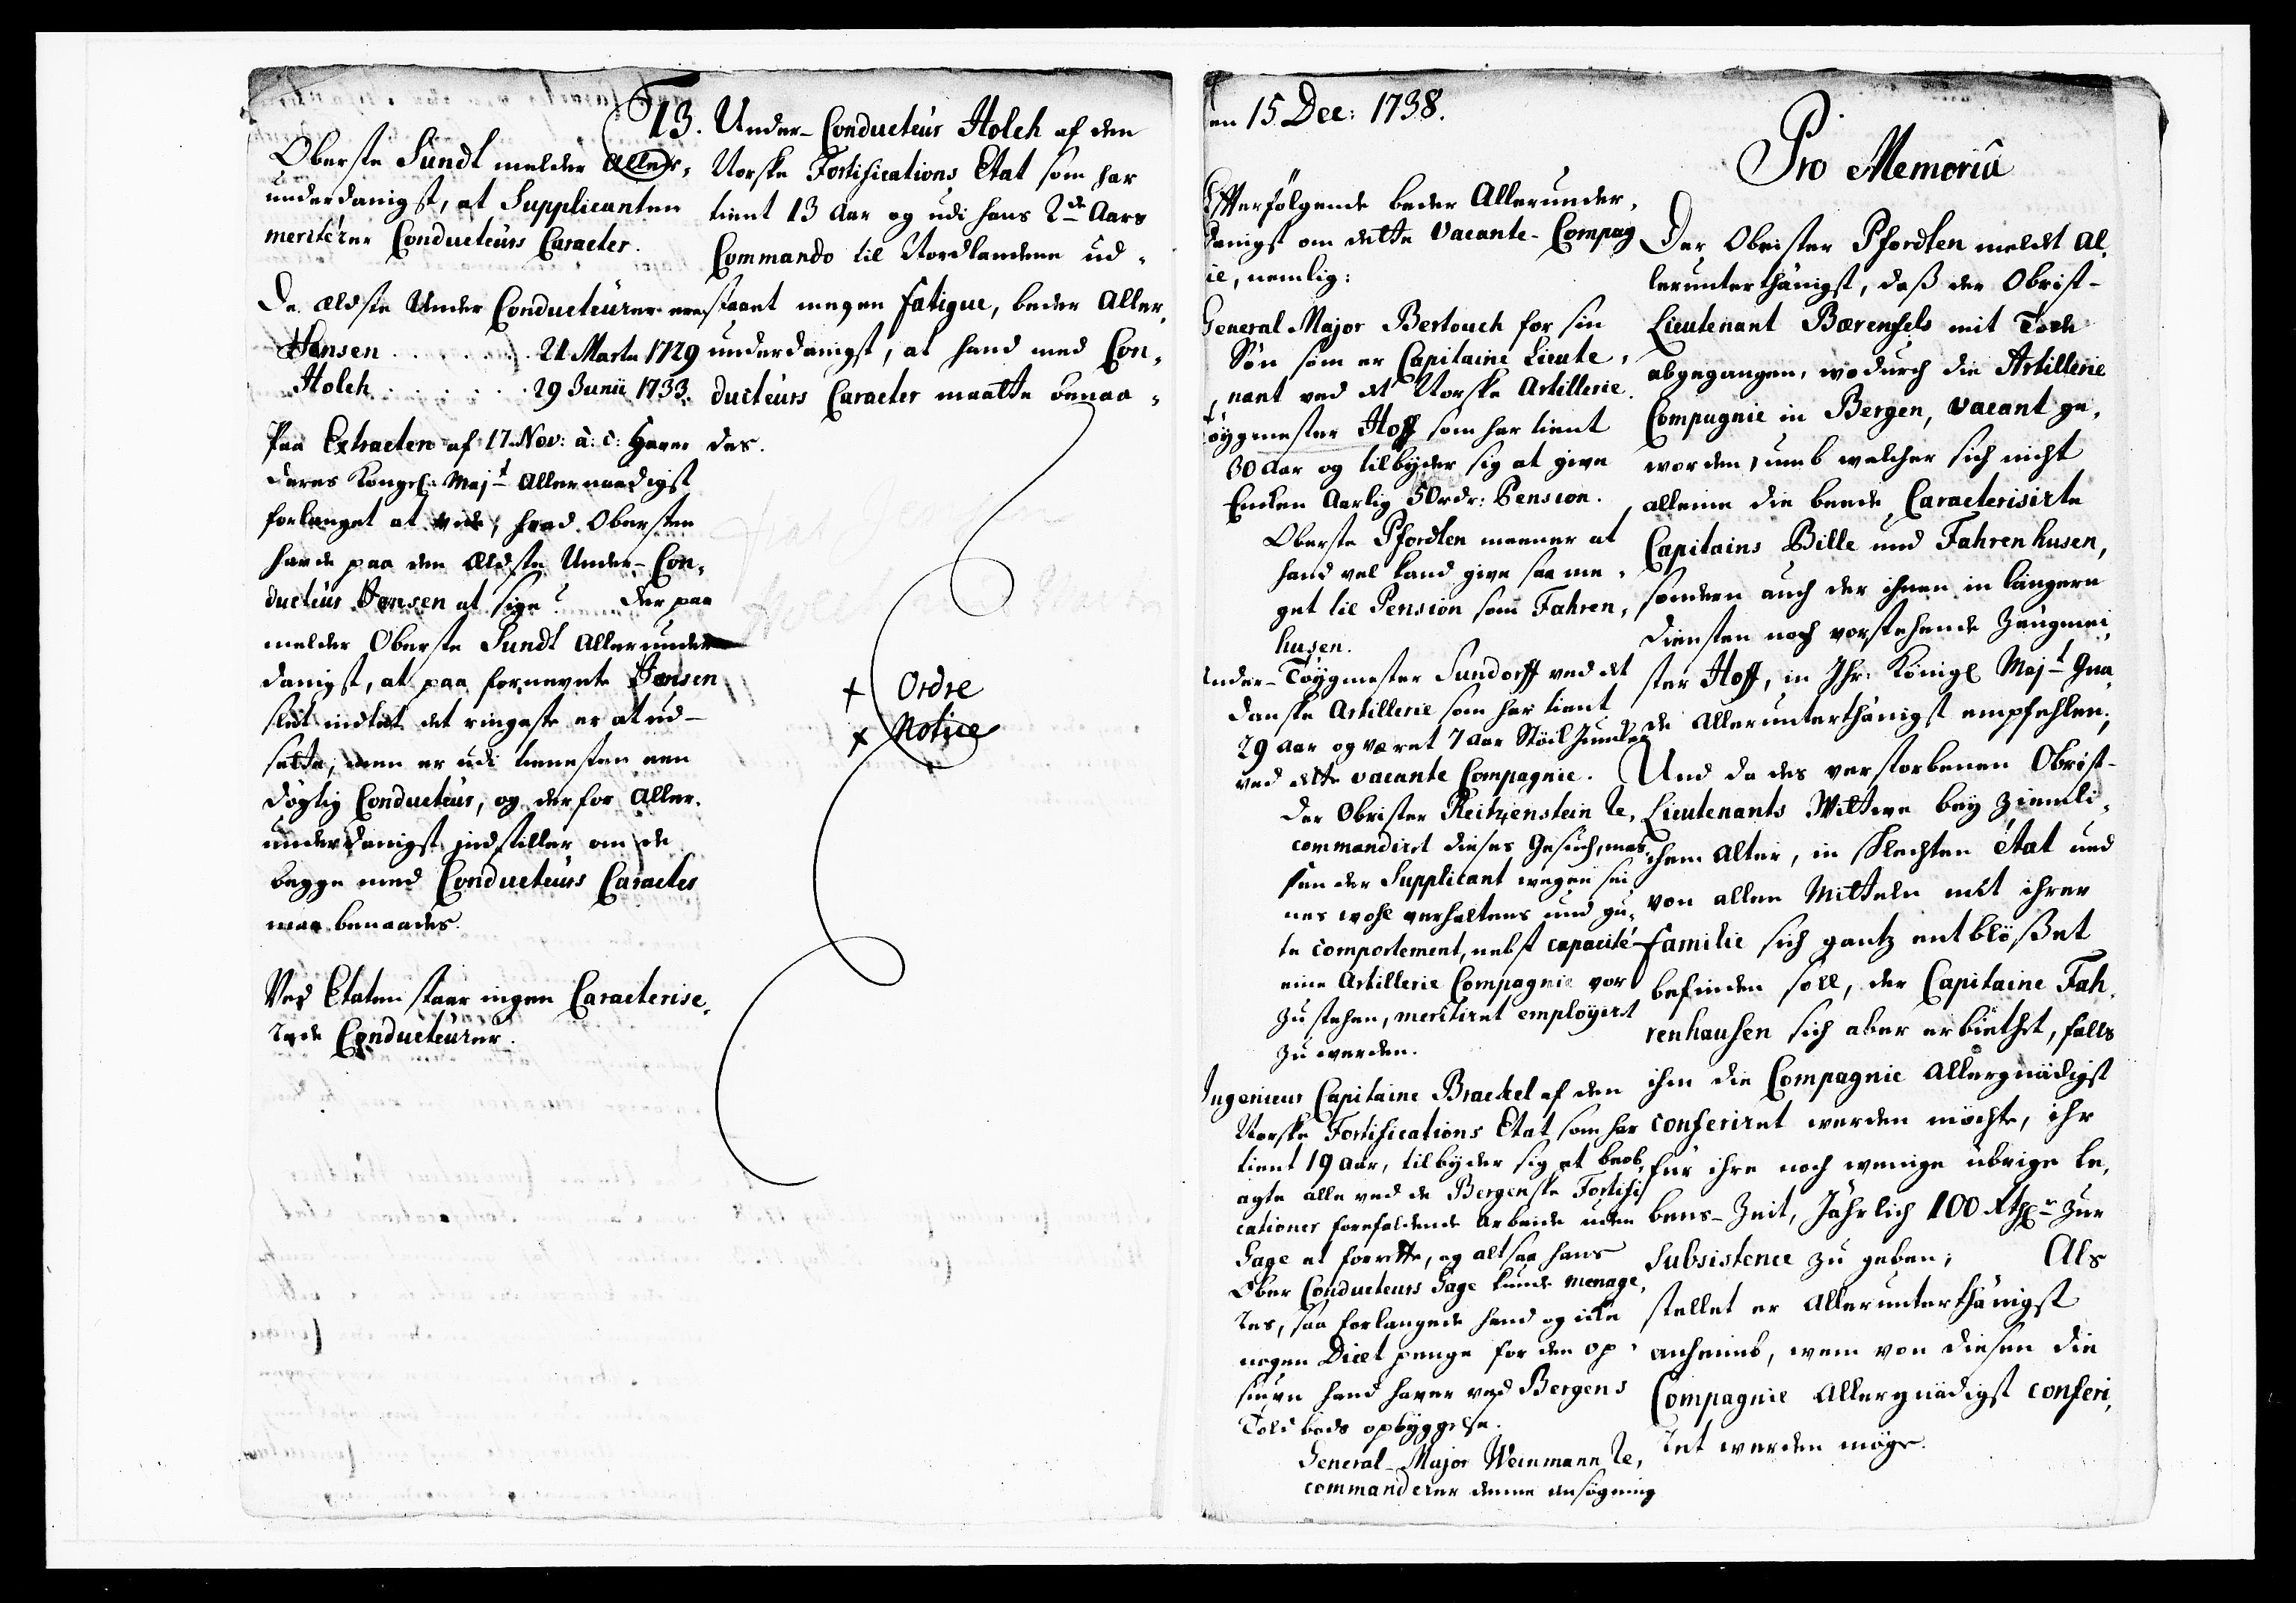 Oberste Sundt melder Aller-
underdanigst, at Supplicanten
meriterer Conducteurs Caracter.
De ældste Under Conducteurer ere
Hansen . . . . . . 21 Marte 1729
Holch . . . . . . 29 Junii 1733.
Paa Extracten af 17. Nov: a: c: haver
Deres Kongel: Majt Allernaadigst
forlanget at vide, hvad Obersten
havde paa den Eldste Under-Con-
ducteur Hansen at sige? Der paa
melder Oberste Sundt Allerunder
danigst, at paa fornevnte Hansen
slet intet det ringeste er at ud-
sætte, men er udi tienesten een
døgtig Conducteur, og derfor Aller-
underdanigst indstiller om de
begge med Conducteurs Caracter
maa benaades.
Ved Etaten staar ingen Caracterise-
rede Conducteurer.
13. Under-Conducteur Holch af den
Norske Fortifications Etat som har
tient 13 Aar og udi hans 2de Aars
Commando til Nordlandene ud-
staaet megen fatigue, beder Aller-
underdanigst, at hand med Con-
ducteurs Caracter maatte benaa-
des.
+ Ordre
x Notice
en 15 Dec: 1738.
Efterfölgende beder Allerunder-
danigst om dette vacante Compag
ie, nemlig:
General Major Bertouch for sin
Sön som er Capitaine Lieute-
nant ved det Norske Artillerie.
Töygmester Hoff som har tient
30 Aar og tilbyder sig at give
Enken Aarlig 50 rdr: Pension.
Oberste Pfordten meener at
hand vel kand give saa me-
get til Pension som Fahren-
husen.
Under-Töygmester Sundorff ved det
Danske Artillerie som har tient
29 Aar og været 7 Aar Stöck Juncker
ved dette vacante Compagnie.
Der Obrister Reitzenstein re-
commandirt dieses Gesuch, mas-
sen der Supplicant wegen sei
nes wohl verhaltens und gu-
te comportement, nebst capacité
eine Artillerie Compagnie vor
zu stehen, meritiret employirt
zu werden.
Ingenieur Capitaine Brackel af den
Norske Fortifications Etat som har
tient 19 Aar, tilbyder sig at beob-
agte alle ved de Bergenske Fortifi
cationer forefaldende Arbeide uden
Gage at forrette, og altsaa hans
Ober Conducteurs Gage kunde menage-
res, saa forlangede hand og icke
nogen Diæt penge for den op-
siun hand haver ved Bergens
Told bods opbyggelse.
General-Major Weinmann re-
commanderer denne ansögning
Pro Memoria
Der Obrister Pfordten meldet al-
lerunterthänigst, daß der Obrist-
Lieutenant Bærenfels mit Tode
abgegangen, wodurch die Artillerie
Compagnie in Bergen, vacant ge-
worden, umb welcher sich nicht
alleine die beede Caracterisirte
Capitains Bille und Fahrenhusen,
sondern auch der ihnen in längern
Diensten noch vorstehende Zeugmei-
ster Hoff, in Ihr. Königl Majt Gna-
de Allerunterthänigst empfehlen;
Und da des verstorbenen Obrist-
Lieutenants Wittwe bey ziemli-
chem Alter, in schlechten état und
von allen Mitteln mit ihrer
familie sich gantz entblößet
befinden soll, der Capitaine Fah-
renhausen sich aber erbiethet, falls
ihm die Compagnie Allergnädigst
conferiret werden möchte, ihr
für ihre noch wenige übrige le-
bens-Zeit, Jährlich 100 Rthlr zur
subsistence zu geben; Als
stellet er Allerunterthänigst
anheimb, wem von diesen die
Compagnie Allergnädigst conferi-
ret werden möge.